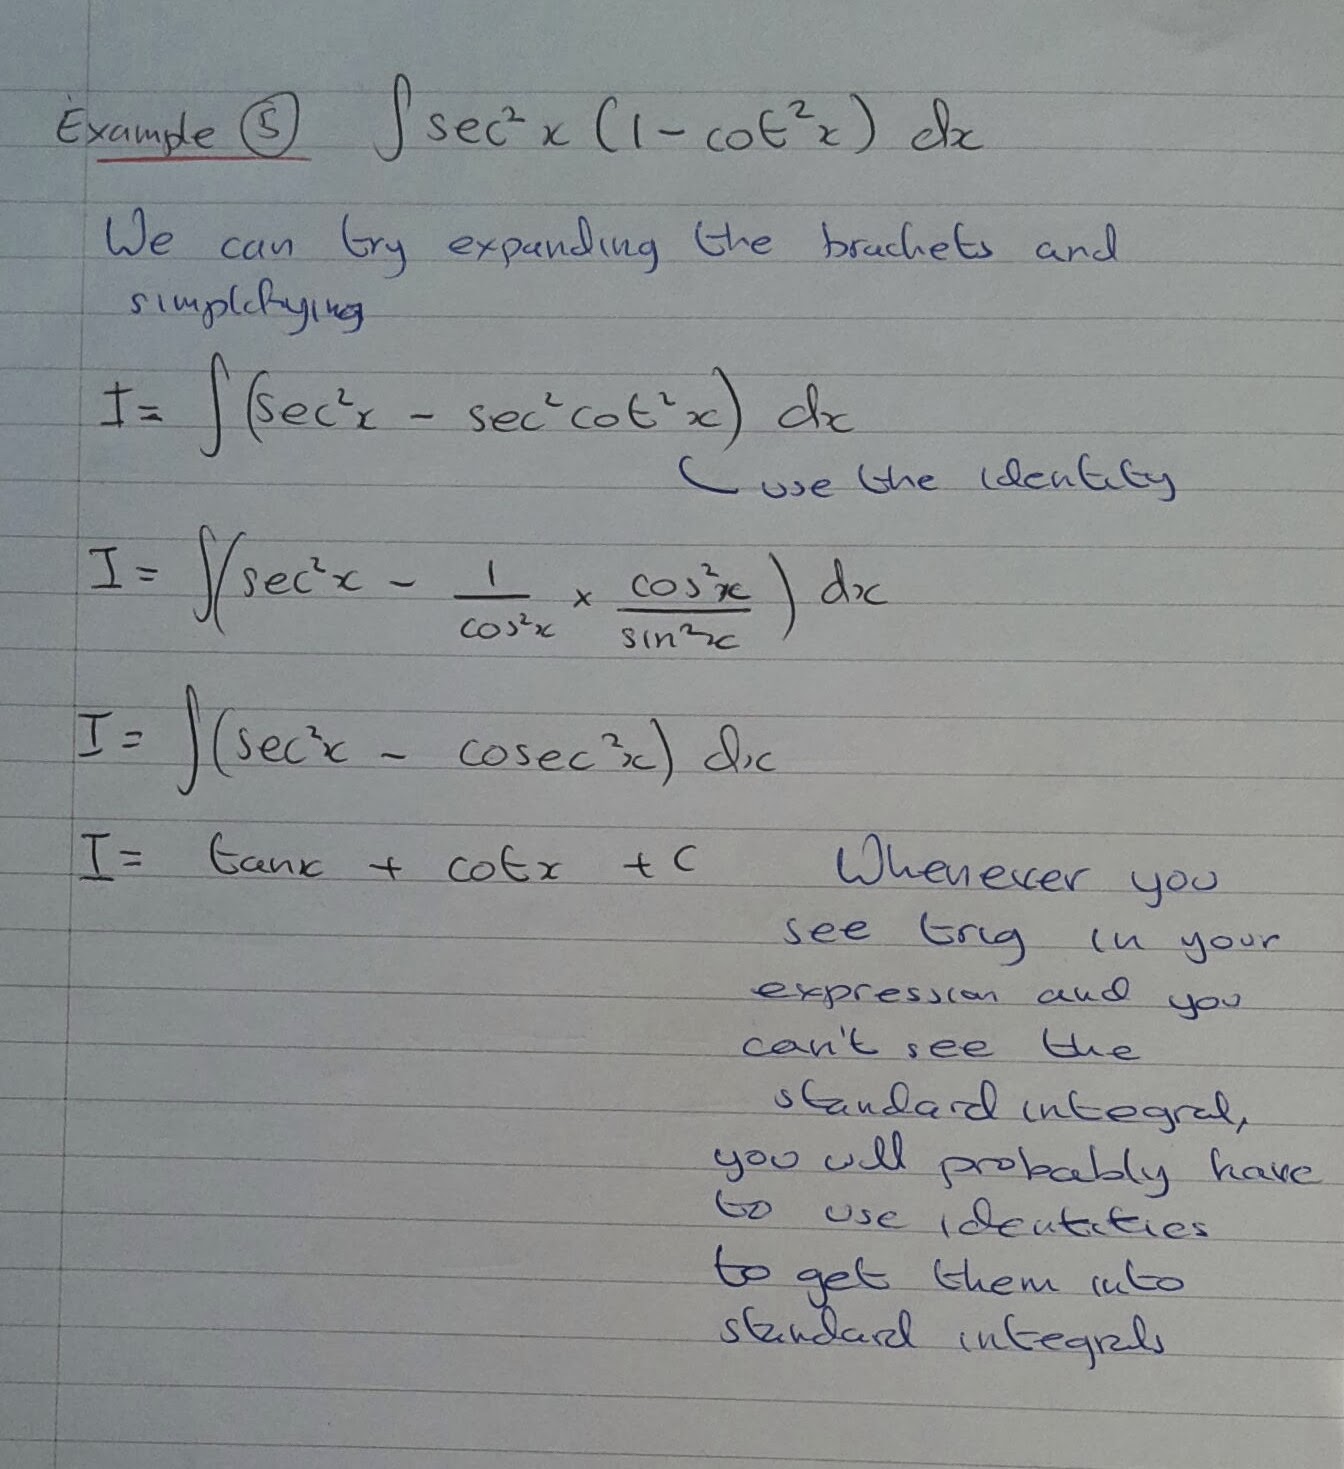 Example ⑤ ∫ sec² x (1 - cot² x) dx
We can try expanding the brackets and
simplifying
I = ∫ (sec²x - sec² cot² x) dx
use the identity
I = ∫ (sec²x - 1/cos²x × cos²x/sin²x) dx
I = ∫ (sec²x - cosec²x) dx
I = tanx + cotx + c
Whenever you
see trig in your
expression and you
can't see the
standard integral,
you will probably have
to use identities
to get them into
standard integrals